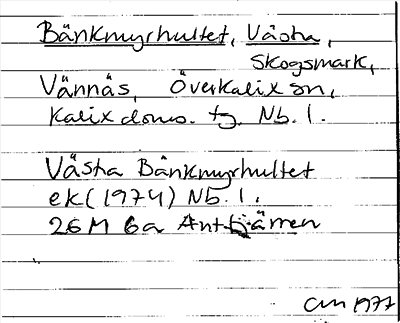 Bänkmyrhultet, Västra,
Skogsmark,
Vännäs, Överkalix sn,
Kalix doms. tg. Nb. l.
Västra Bänkmyrhultet
ek (1974) Nb. l.
26M 6a Anttjärren
CM 1977